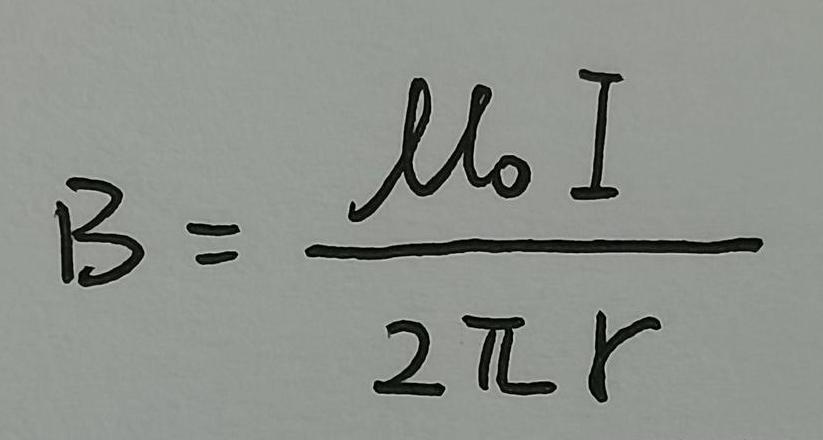 B = μ₀ I / 2 π r